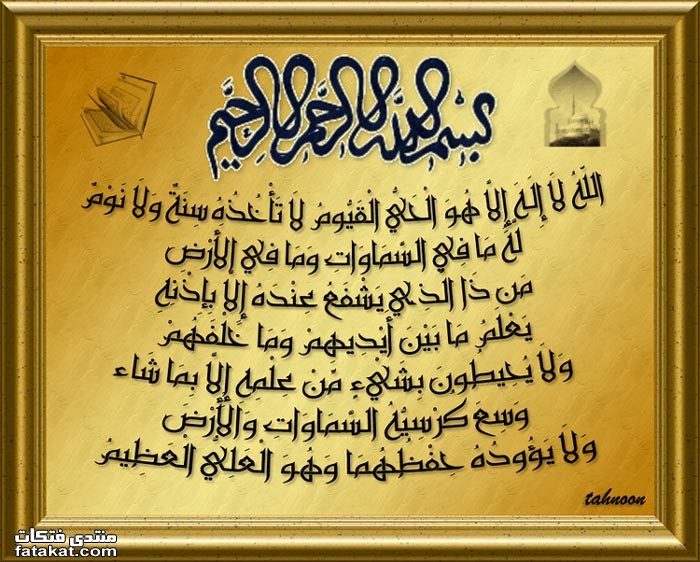 بسم الله الرحمن الرحيم
اللّهُ لاَ إِلَهَ إِلاَّ هُوَ الْحَيُّ الْقَيُّومُ لاَ تَأْخُذُهُ سِنَةٌ وَلاَ نَوْمٌ
لَّهُ مَا فِي السَّمَاوَاتِ وَمَا فِي الأَرْضِ
مَن ذَا الَّذِي يَشْفَعُ عِنْدَهُ إِلاَّ بِإِذْنِهِ
يَعْلَمُ مَا بَيْنَ أَيْدِيهِمْ وَمَا خَلْفَهُمْ
وَلاَ يُحِيطُونَ بِشَيْءٍ مِّنْ عِلْمِهِ إِلاَّ بِمَا شَاء
وَسِعَ كُرْسِيُّهُ السَّمَاوَاتِ وَالأَرْضَ
وَلاَ يَؤُودُهُ حِفْظُهُمَا وَهُوَ الْعَلِيُّ الْعَظِيمُ
tahnoon
منتدى فتكات
fatakat.com